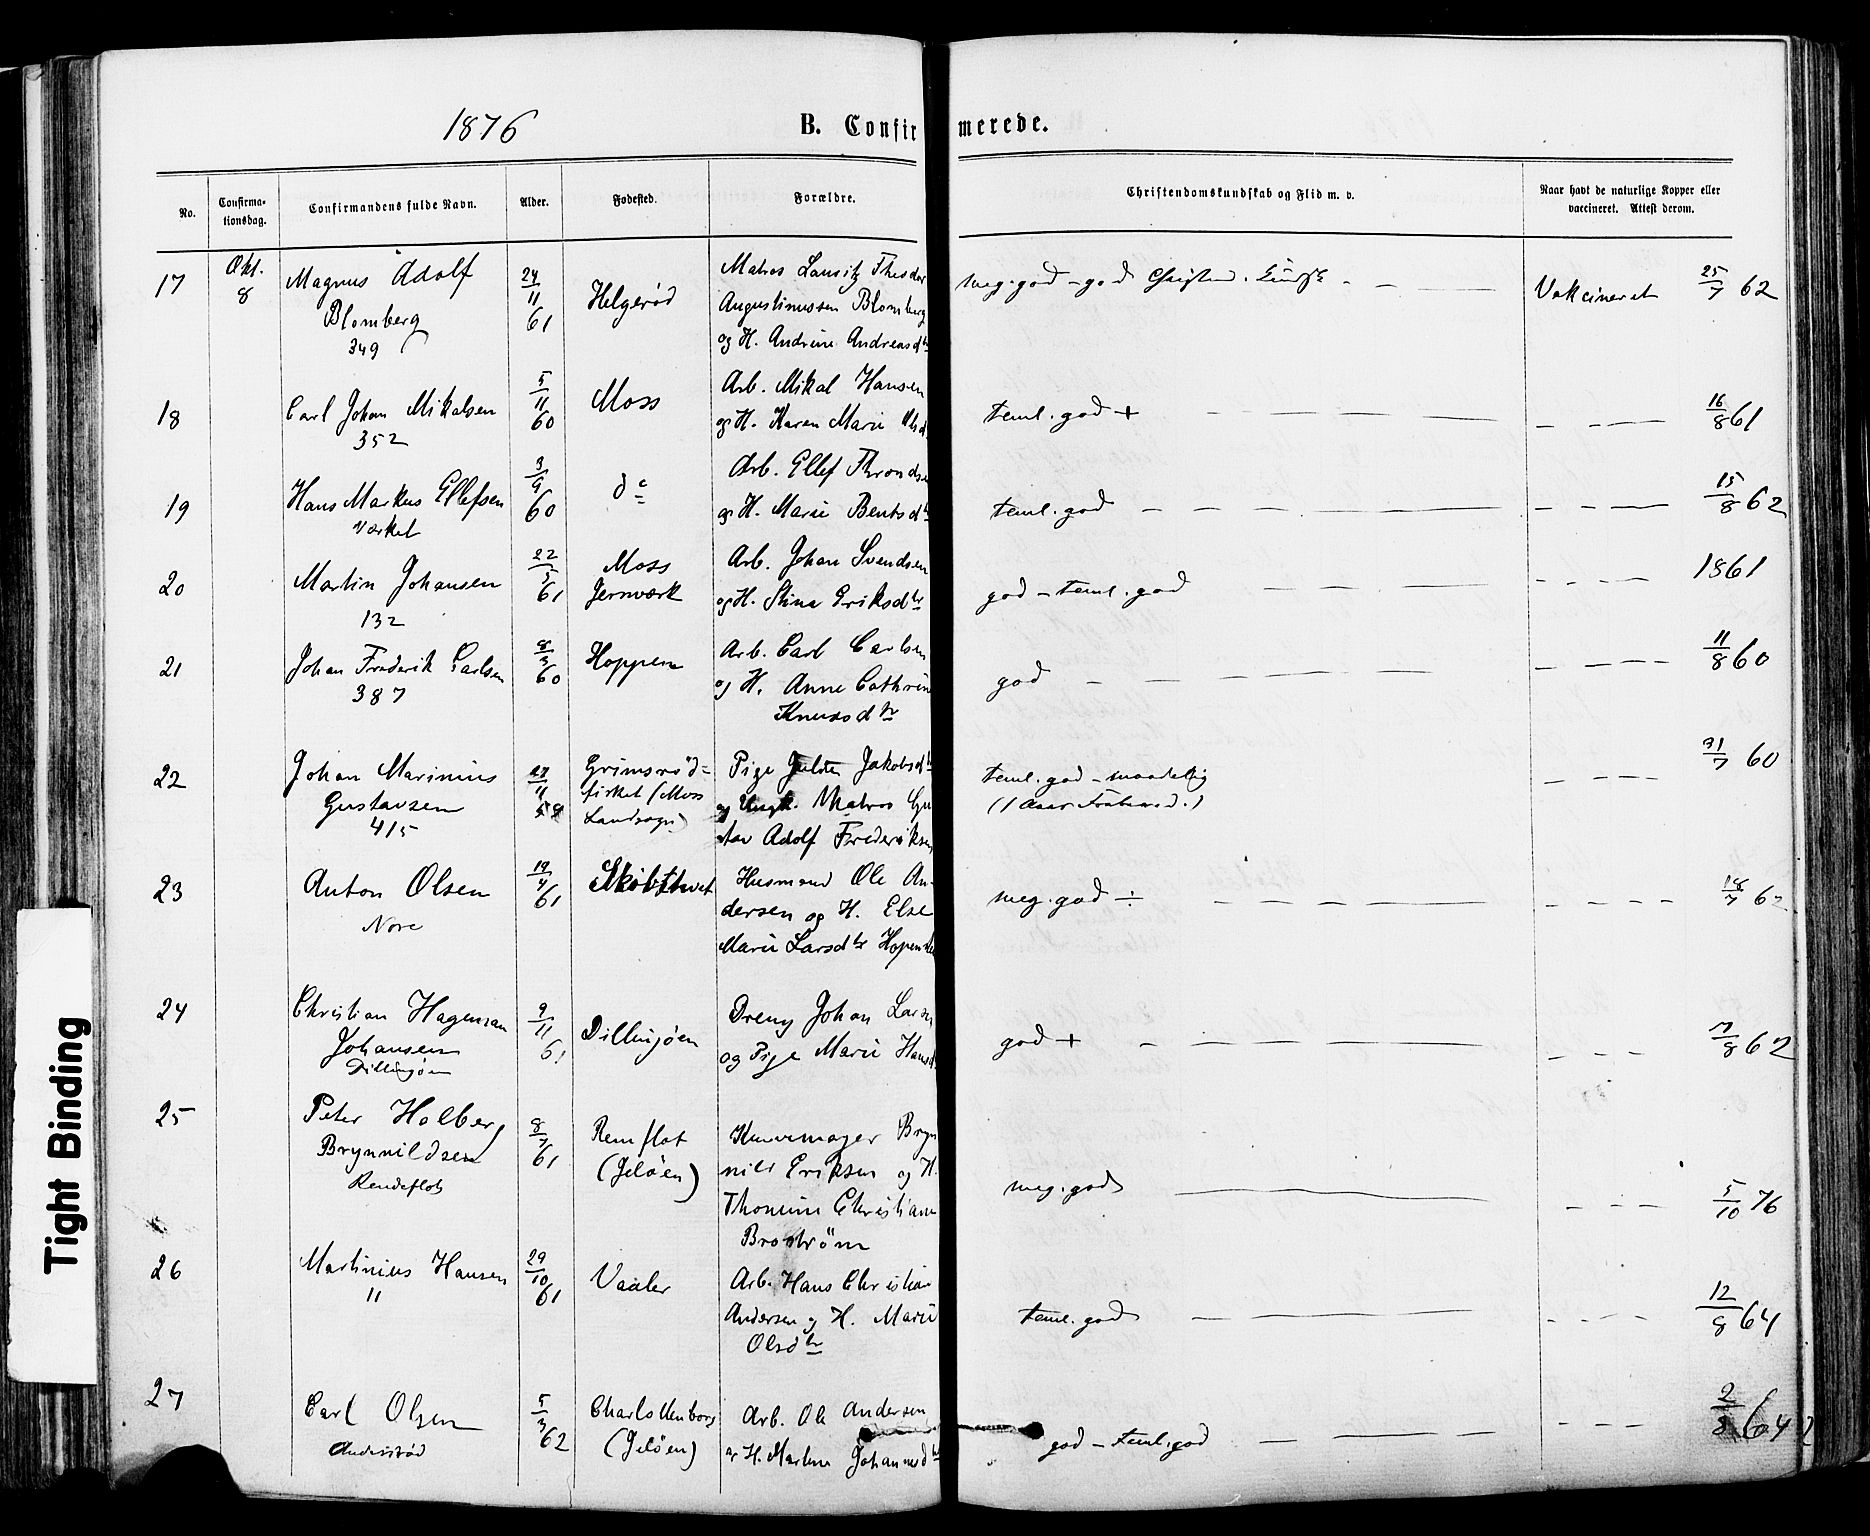 1876
B. Confir merede.
No.
Confirma-
tionsdag.
Confirmandens fulde Navn.
Alder.
Fødested.
Forældre.
Christendomskundskab og Flid m. v.
Naar havt de naturlige Kopper eller
vaccineret. Attest derom.
17 Okt. 8 Magnus Adolf 24/11 61 Helgerød Matros Theodor meg. god - god Vakcineret 25/7 62
Blomberg Augustinussen Blomberg
349 og H. Andrine Andreasdtr
18 Carl Johan Mikalsen 5/11 60 Moss Arb. Mikal Hansen teml. god + 16/8 61
352 og H. Karen Marie
19 Hans Markus Ellefsen 3/9 60 do Arb. Ellef teml. god 15/8 62
Værket og H. Marie Bentsdtr
20 Martin Johansen 22/5 61 Moss Arb. Johan Svendsen god - teml. god 1861
132 Jernværk og H. Stina Eriksdtr
21 Johan Frederik Carlsen 8/3 60 Hoppern Arb. Carl Carlsen god 11/8 60
387 og H. Anne Cathrin
Knudsdtr
22 Johan Marinius 27/11 59 Grimsrød= Pige Jakobsdtr teml. god - maadelig 31/7 60
Gustavsen (Moss og Ungk. Matros Gu
415 Landsogn) stav Adolf Frederiksen
23 Anton Olsen 19/4 61 Husmand Ole An- meg. god ÷ 18/7 62
Nore dersen og H. Else
Marie Larsdtr
24 Christian Hageman 9/11 61 Dillingøen Dreng Johan Larsen god + 17/8 62
Johansen og Pige Marie Hansd
Dillingøen
25 Peter Holberg 8/7 61 Remflot Bryn meg. god 5/10 76
Brynnildsen (Jeløen) nild Eriksen og H.
Rendeflot Thomine Christiane
Broström
26 Martinius Hansen 29/10 61 Vaaler Arb. Hans Christian teml. god 12/8 64
11 Andersen og H. Marie
Olsdtr
27 Carl Olsen 5/3 62 Charlottenborg Arb. Ole Andersen god - teml. god 2/8 64
(Jeløen) og H. Johannesdtr
Tight Binding